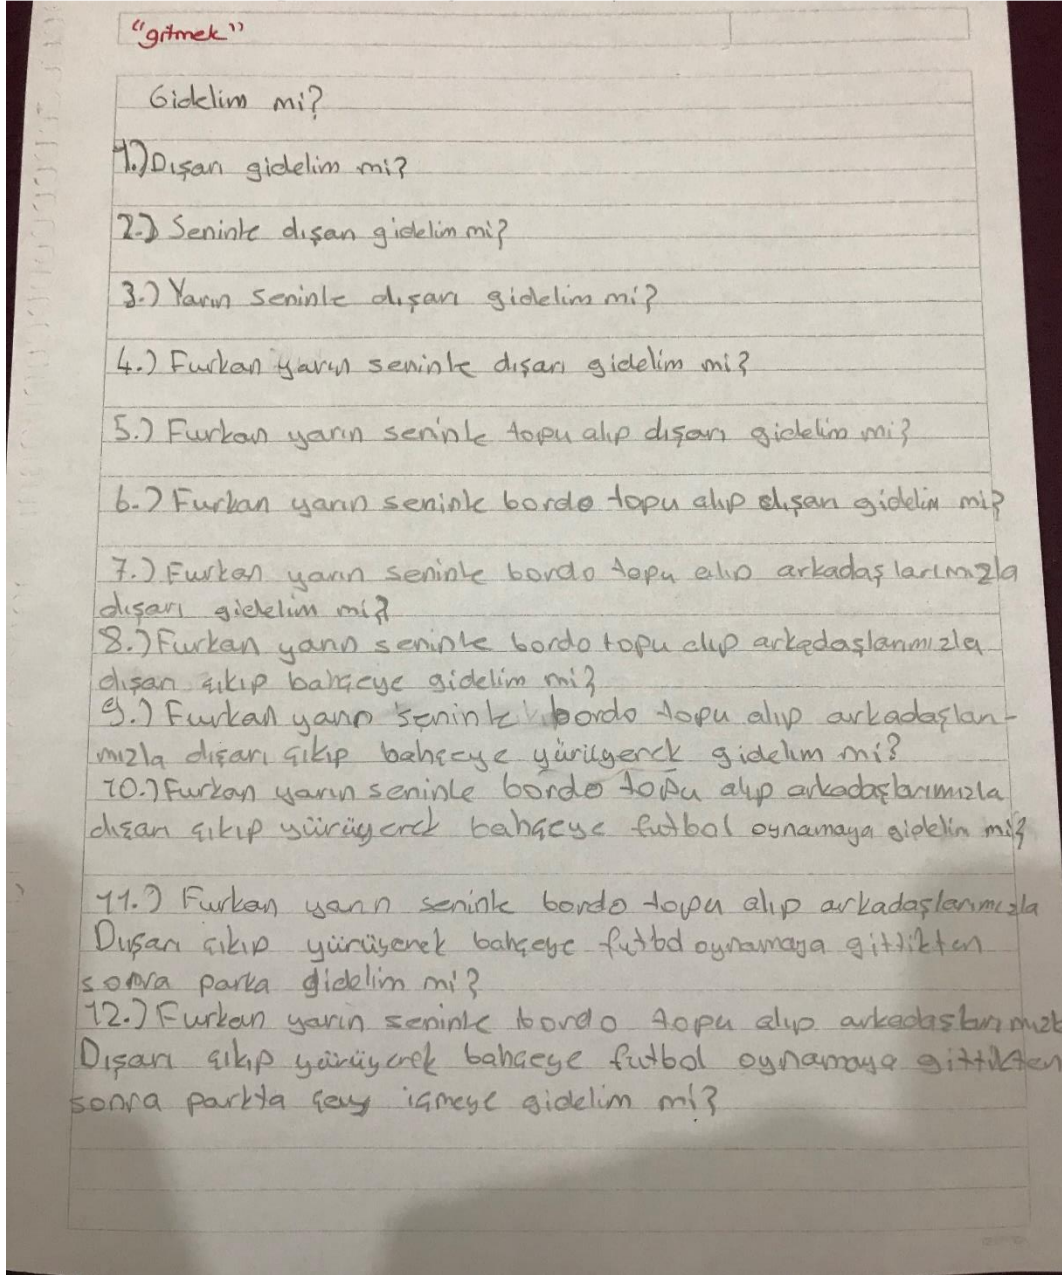 "gitmek"
Gidelim mi?
1.) Dışarı gidelim mi?
2.) Seninle dışarı gidelim mi?
3.) Yarın seninle dışarı gidelim mi?
4.) Furkan yarın seninle dışarı gidelim mi?
5.) Furkan yarın seninle topu alıp dışarı gidelim mi?
6.) Furkan yarın seninle bordo topu alıp dışarı gidelim mi?
7.) Furkan yarın seninle bordo topu alıp arkadaşlarımızla
dışarı gidelim mi?
8.) Furkan yarın seninle bordo topu alıp arkadaşlarımızla
dışarı çıkıp bahçeye gidelim mi?
9.) Furkan yarın seninle bordo topu alıp arkadaşları-
mızla dışarı çıkıp bahçeye yürüyerek gidelim mi?
10.) Furkan yarın seninle bordo topu alıp arkadaşlarımızla
dışarı çıkıp yürüyerek bahçeye futbol oynamaya gidelim mi?
11.) Furkan yarın seninle bordo topu alıp arkadaşlarımızla
Dışarı çıkıp yürüyerek bahçeye futbol oynamaya gittikten
sonra parka gidelim mi?
12.) Furkan yarın seninle bordo topu alıp arkadaşlarımızla
Dışarı çıkıp yürüyerek bahçeye futbol oynamaya gittikten
sonra parkta çay içmeye gidelim mi?